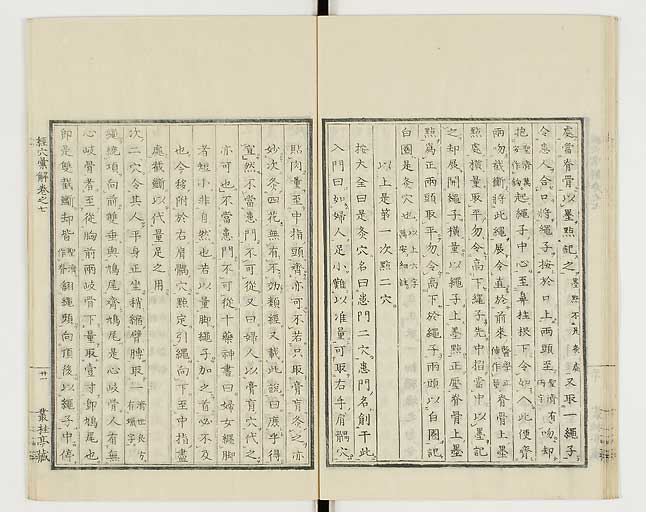 處當脊骨以墨點記之墨點不是灸處又取一繩子
令患人合口將繩子按於口上兩頭至吻却
抱起繩子中心至鼻柱根下令如人此便齊
兩吻截斷將此繩展令直於前來脊骨上墨
點處橫量取平勿令高下繩子先中摺當中以墨記
之却展開繩子橫量以繩子上墨點正壓脊骨上墨
點爲正兩頭取平勿令高下於繩子兩頭以白圈記
白圈是灸穴也
以上是第一次點二穴
按大全曰是灸穴名曰患門二穴患門名創于此
入門曰如婦人足小難以准量可取右手肩髃穴
貼肉量至中指頭齊亦可不若只取膏肓灸之亦
妙次灸四花無有不効類經又載此說曰庶乎得
宜然不當患門不可從又曰婦人以膏肓穴代之
亦可也不當患門不可從十藥神書曰婦女纏脚
者短小非自然也若以量脚繩子加之首必不及
也今移附於右肩髃穴點定引繩向下至中指盡
處截斷以代量足之用
次二穴令其人平身正坐稍縮臂膊取一
繩繞項向前雙垂與鳩尾齊鳩尾是心岐骨人有無
心岐骨者至從胸前兩岐骨下量取壹寸卽鳩尾也
即是雙截斷却背翻繩頭向項後以繩子中停
經穴彙解卷之七
廿一
叢桂亭藏